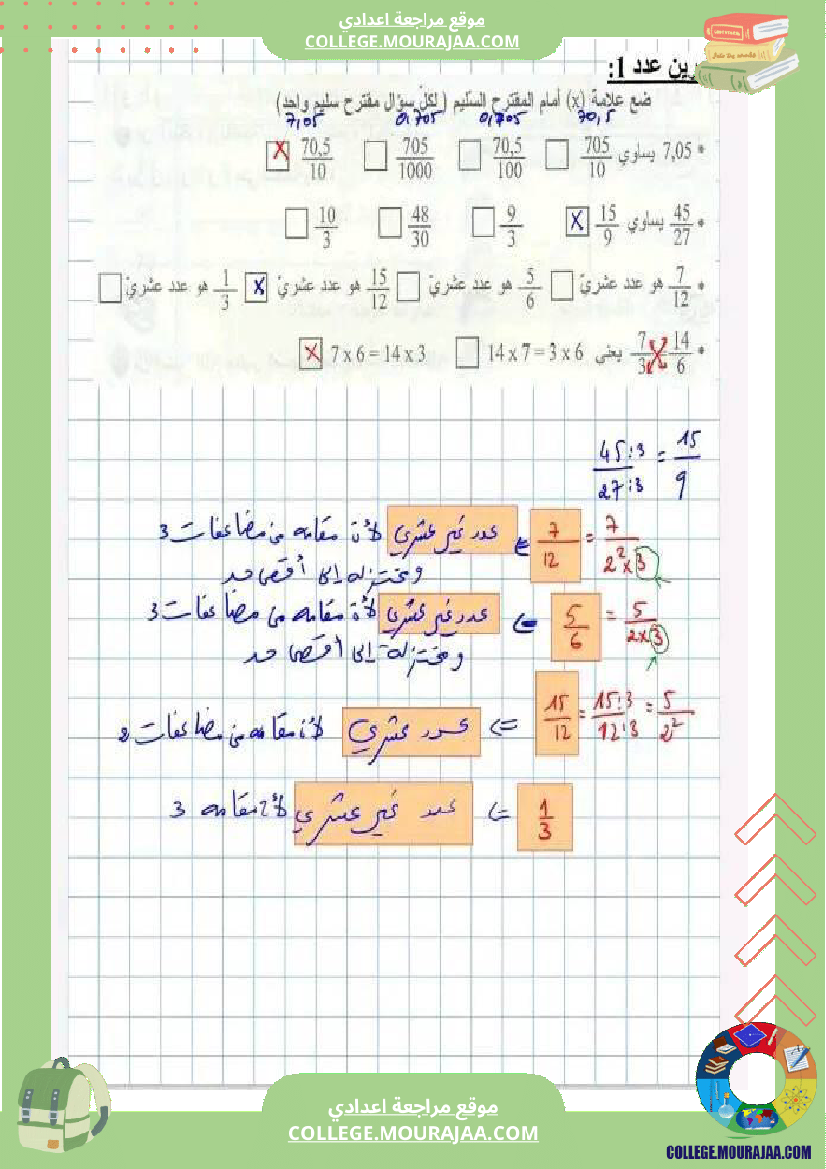 موقع مراجعة اعدادي
COLLEGE.MOURAJAA.COM
رين عدد 1:
ضع علامة (x) أمام المقترح السّليم ( لكلّ سؤال مقترح سليم واحد)
70,5 0,705 0,705 7,05
* 7,05 يساوي 705/10 ☐ 70,5/100 ☐ 705/1000 ☐ 70,5/10 ☒
* 45/27 يساوي 15/9 ☒ 9/3 ☐ 48/30 ☐ 10/3 ☐
* 7/12 هو عدد عشريّ ☐ 5/6 هو عدد عشريّ ☐ 15/12 هو عدد عشريّ ☒ 1/3 هو عدد عشريّ ☐
* 14/6 7/3 يعني 14 x 7 = 3 x 6 ☐ 7 x 6 = 14 x 3 ☒
45:3/27:3 = 15/9
7/12 = 7/2²x3 عدد غير عشري لأن مقامه من مضاعفات 3
ومختزلة إلى أقصى حد
5/6 = 5/2x3 => عدد غير عشري لأن مقامه من مضاعفات 3
ومختزلة إلى أقصى حد
15/12 = 15:3/12:3 = 5/2² => عدد عشري لأن مقامه من مضاعفات 2
1/3 => عدد غير عشري لأن مقامه 3
موقع مراجعة اعدادي
COLLEGE.MOURAJAA.COM
COLLEGE.MOURAJAA.COM